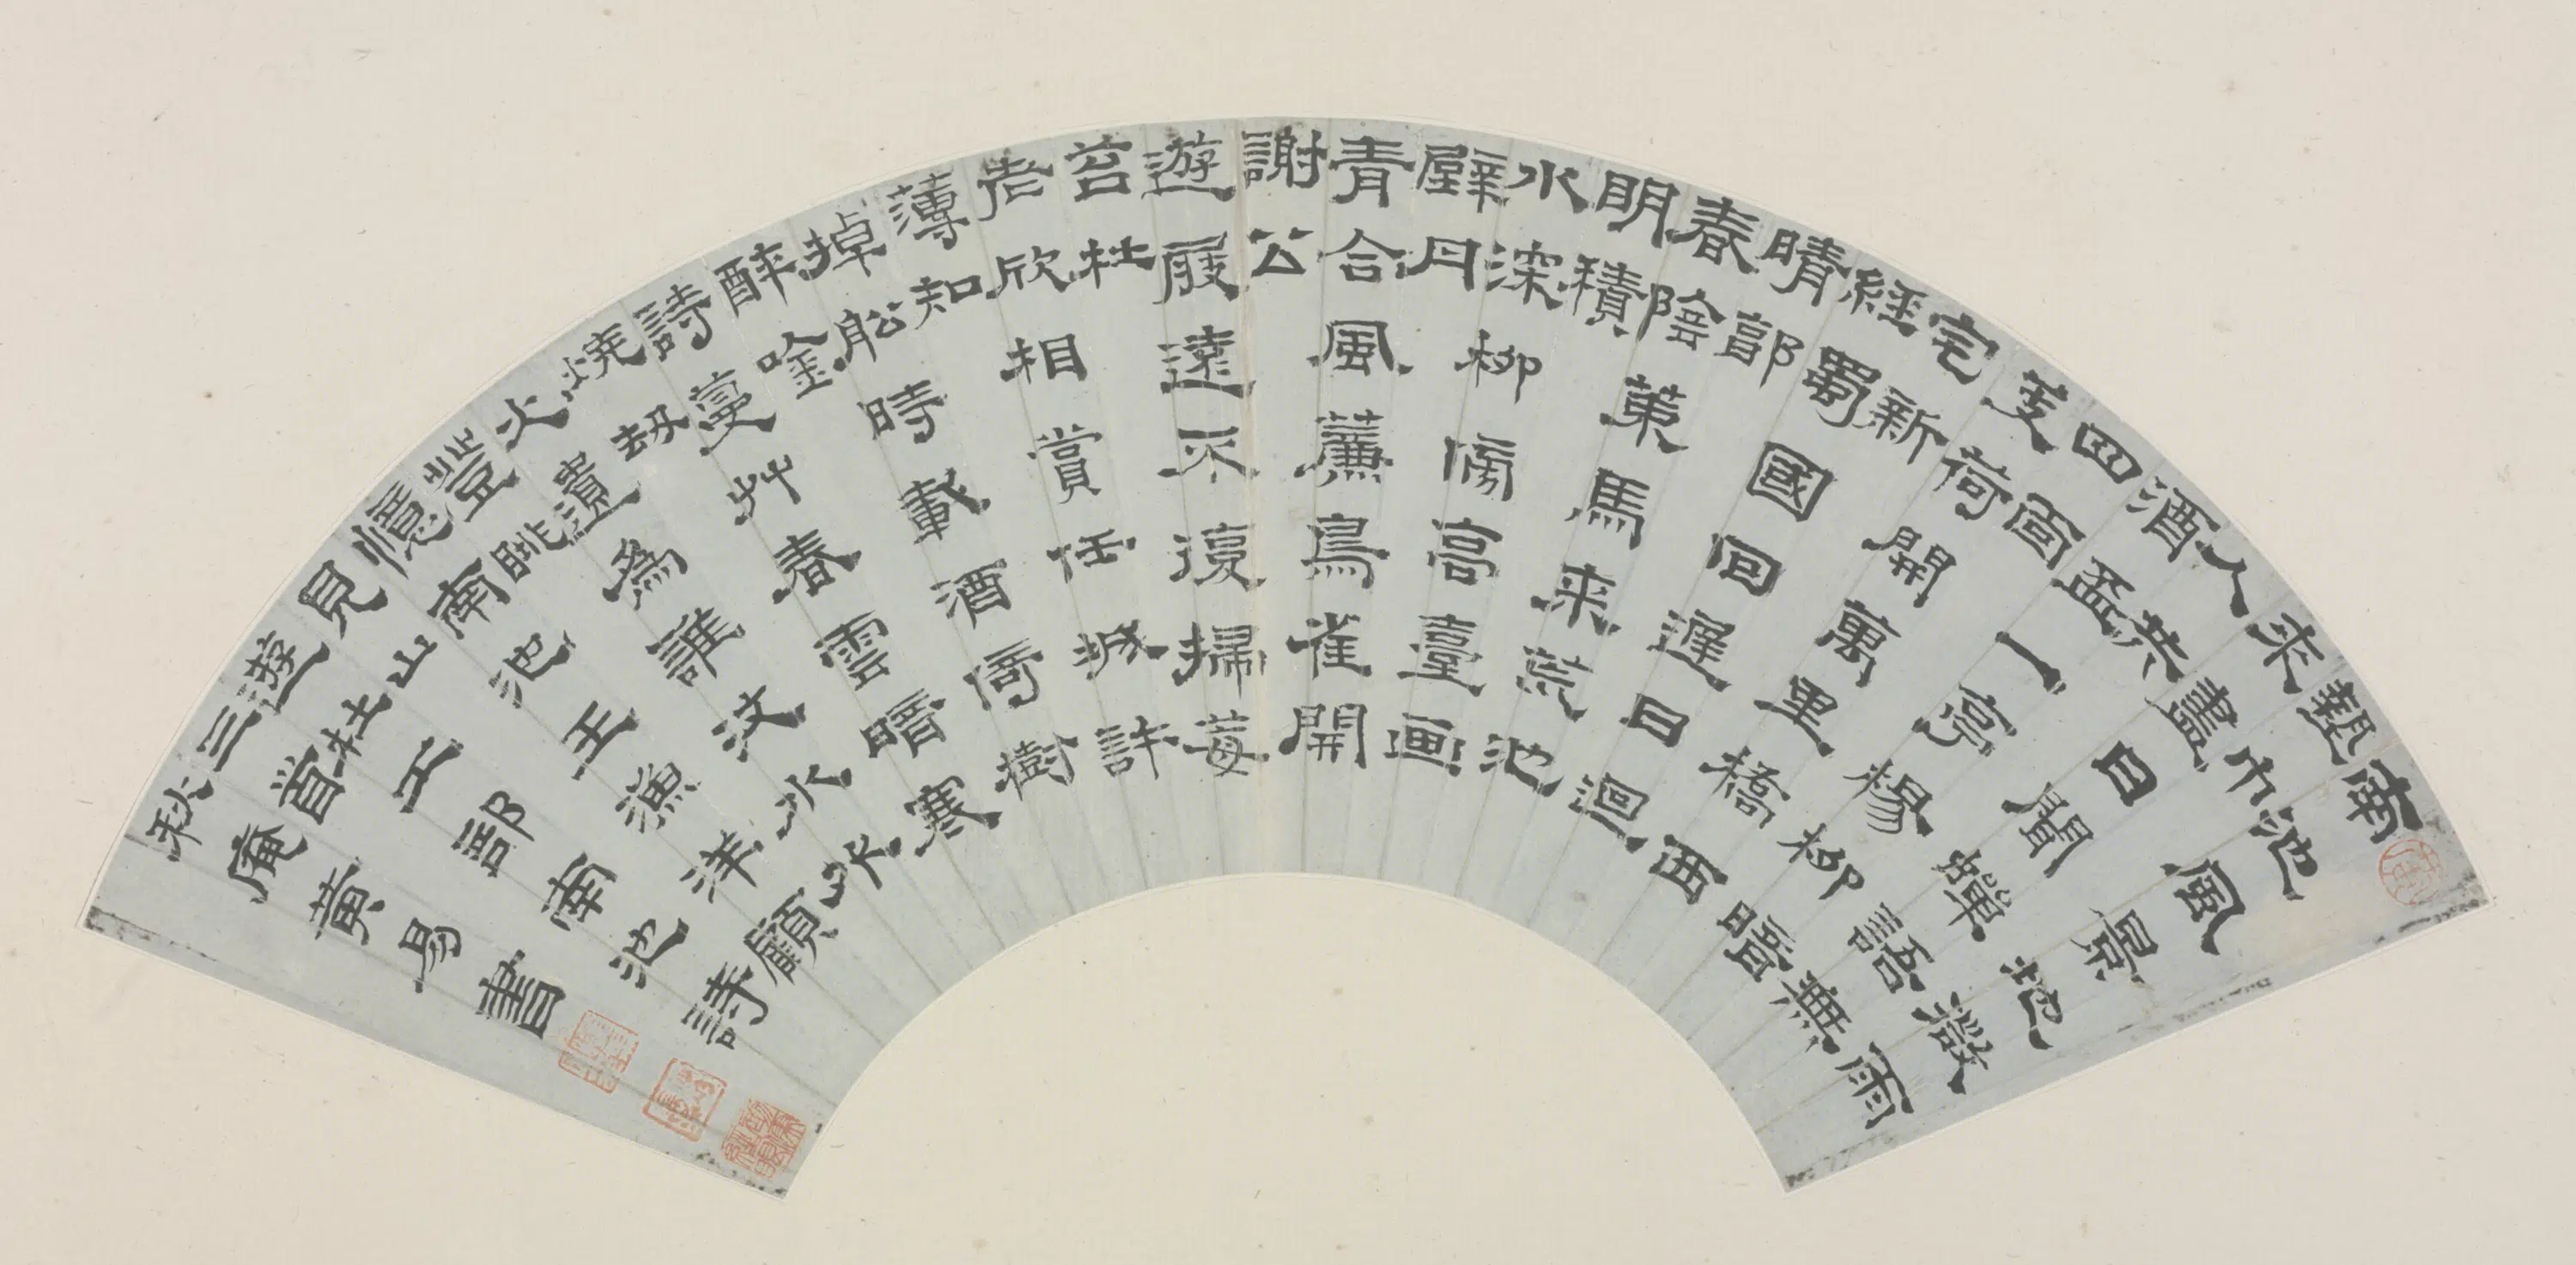 南池風景地微雨
墊巾
來盡日聞蟬語無
人共
酒盃一亭楊柳暗
四面
芰荷開萬里橋西
宅新
經蜀國回遲日迴
晴郭
春陰策馬來荒池
明積
水深柳傍高臺画
壁丹
青合風簾鳥雀開
謝公
遊屐遠不復掃莓
苔杜
老欣相賞任城許
薄知
棹舩時載酒倚樹
醉唫
詩蔓艸春雲暗寒
燒劫
火遺為誰汶水
登眺
憶南池王漁洋顧
見山
遊杜工部南池詩
三首
秋庵黃易書